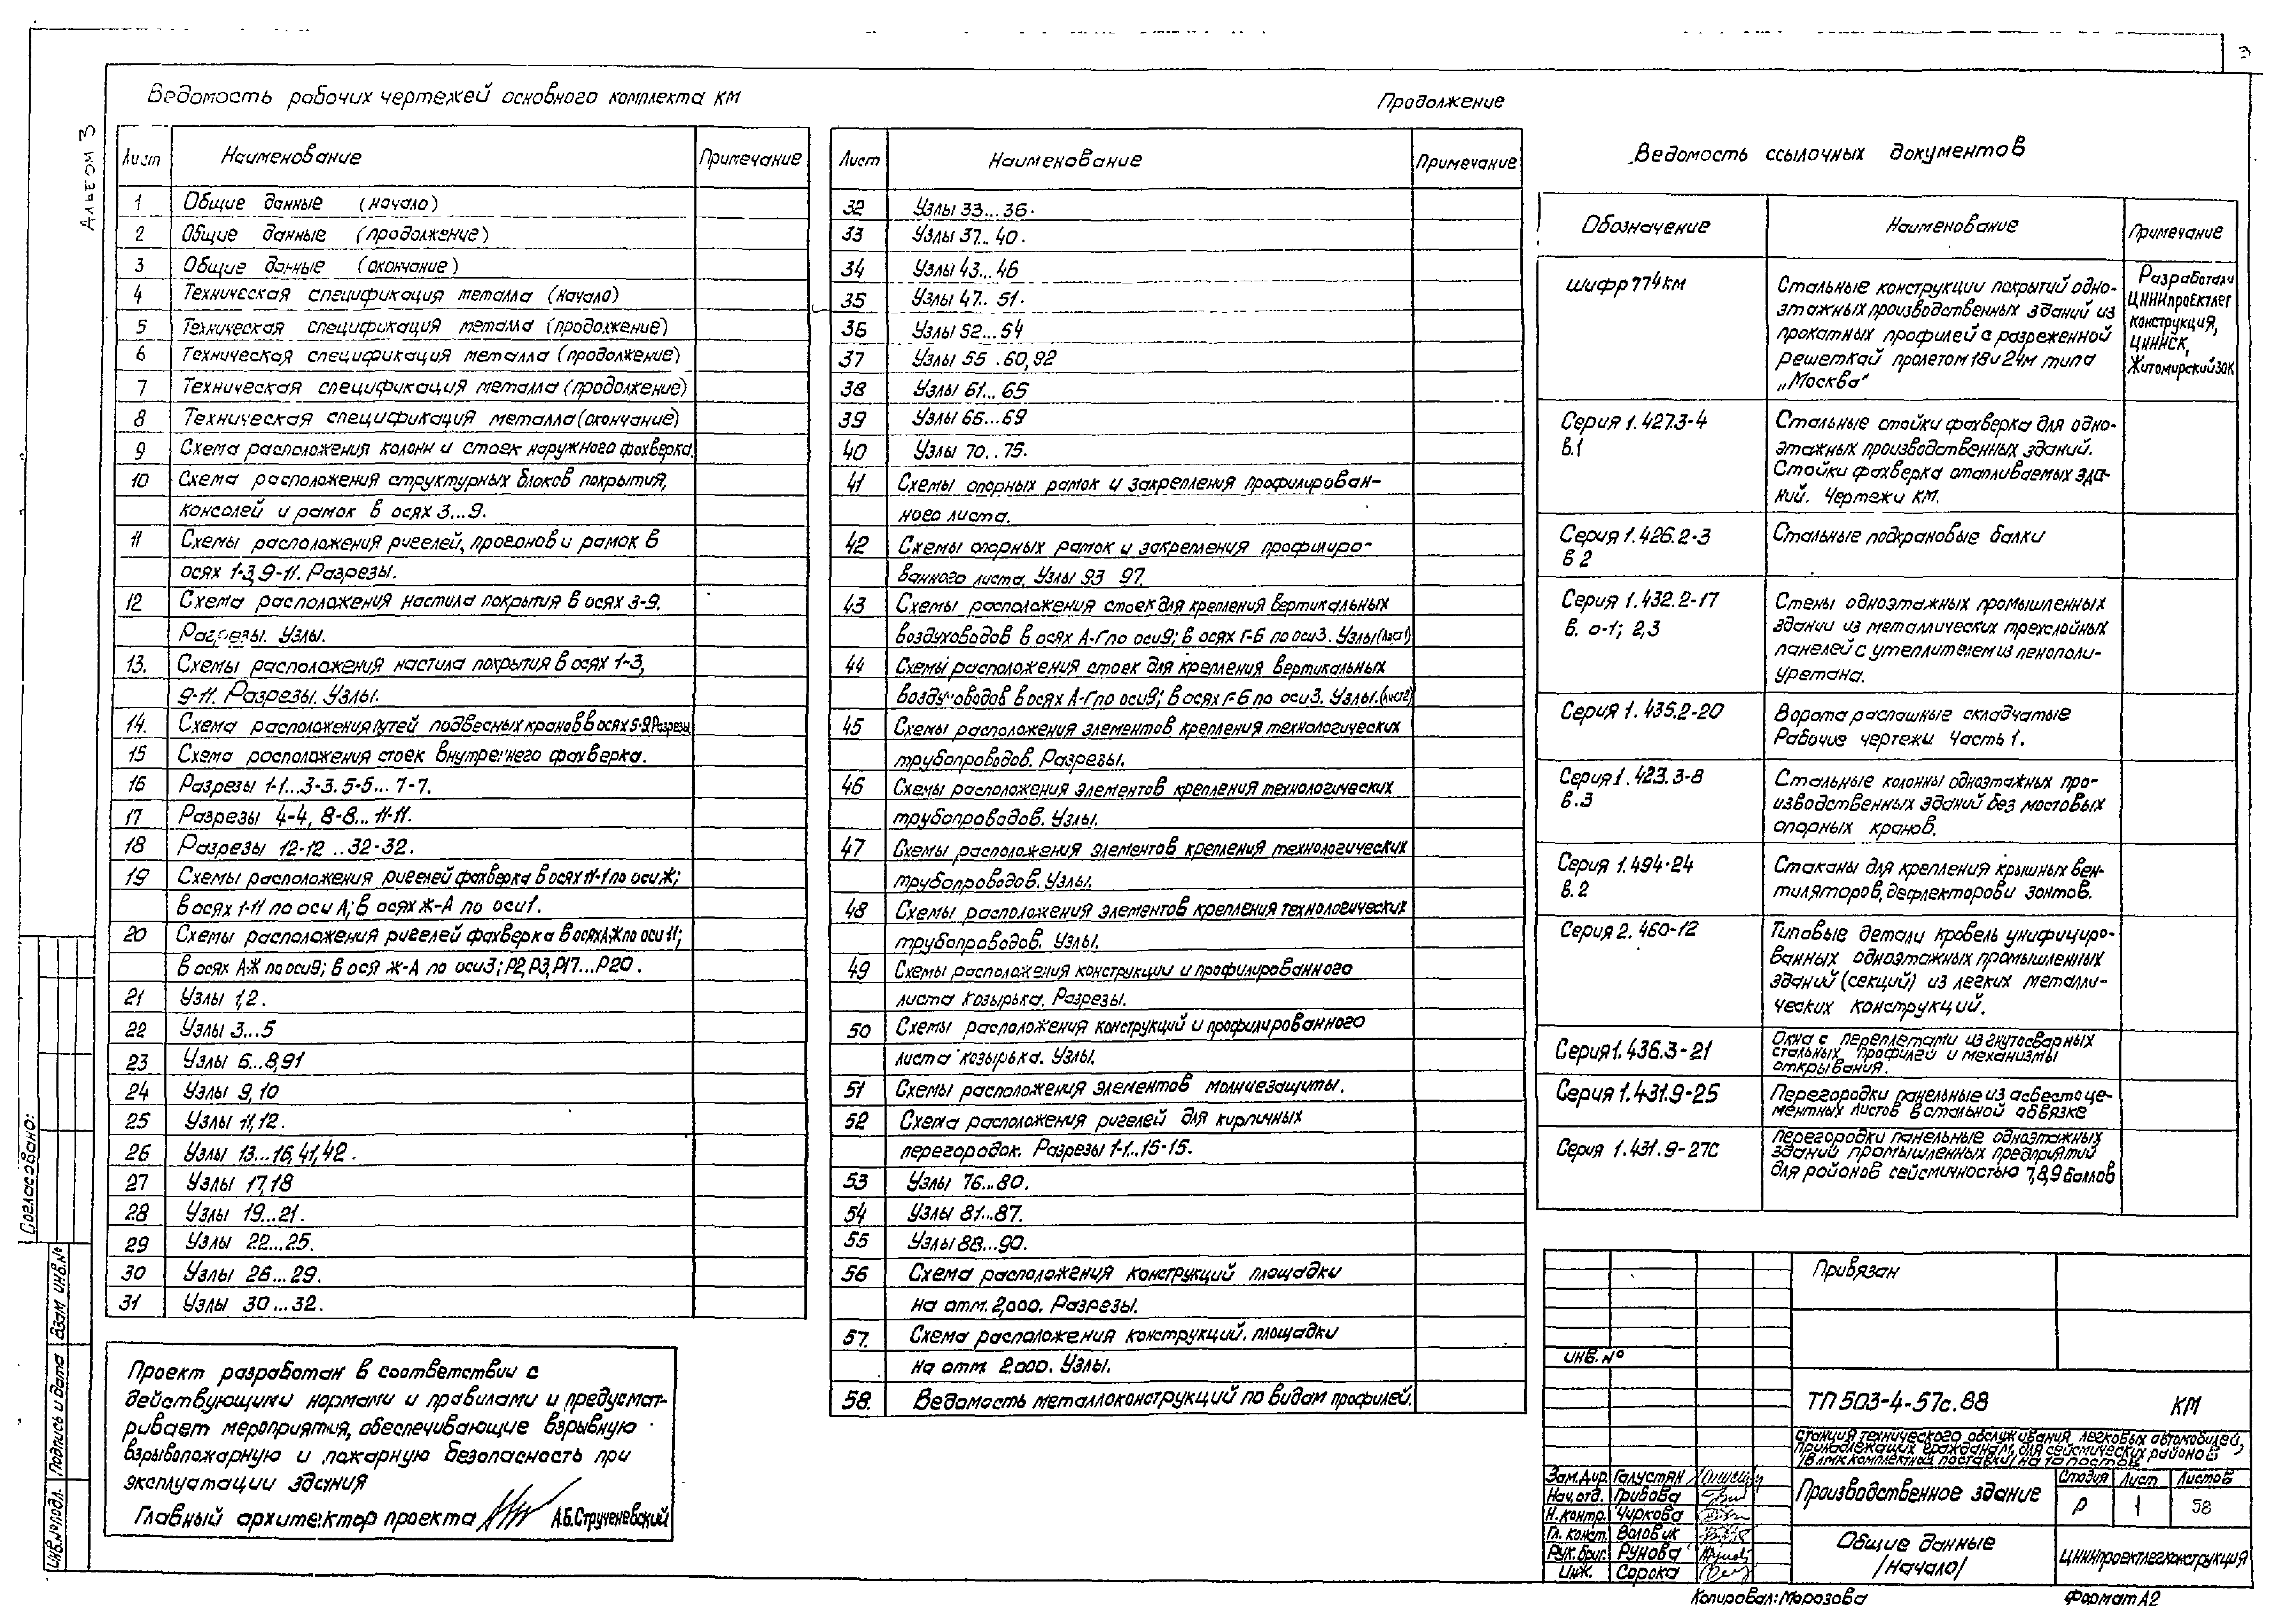 3
Альбом 3
Ведомость рабочих чертежей основного комплекта КМ
Лист Наименование Примечание
1 Общие данные (начало)
2 Общие данные (продолжение)
3 Общие данные (окончание)
4 Техническая спецификация металла (начало)
5 Техническая спецификация металла (продолжение)
6 Техническая спецификация металла (продолжение)
7 Техническая спецификация металла (продолжение)
8 Техническая спецификация металла (окончание)
9 Схема расположения колонн и стоек наружного фахверка.
10 Схема расположения структурных блоков покрытия,
консолей и рамок в осях 3...9.
11 Схемы расположения ригелей, прогонов и рамок в
осях 1-3, 9-11. Разрезы.
12 Схема расположения настила покрытия в осях 3-9.
Разрезы. Узлы.
13. Схемы расположения настила покрытия в осях 1-3,
9-11. Разрезы. Узлы.
14. Схема расположения путей подвесных кранов в осях 5-9. Разрезы
15 Схема расположения стоек внутреннего фахверка.
16 Разрезы 1-1...3-3. 5-5... 7-7.
17 Разрезы 4-4, 8-8... 11-11.
18 Разрезы 12-12 ..32-32.
19 Схемы расположения ригелей фахверка в осях 11-1 по оси Ж;
в осях 1-11 по оси А; в осях Ж-А по оси 1.
20 Схемы расположения ригелей фахверка в осях А-Ж по оси 11;
в осях А-Ж по оси 9; в ося Ж-А по оси 3; Р2, Р3, Р17...Р20.
21 Узлы 1,2.
22 Узлы 3...5
23 Узлы 6...8,91
24 Узлы 9,10
25 Узлы 11,12.
26 Узлы 13...16,41,42.
27 Узлы 17,18
28 Узлы 19...21.
29 Узлы 22...25.
30 Узлы 26...29.
31 Узлы 30...32.
Проект разработан в соответствии с
действующими нормами и правилами и предусмат-
ривает мероприятия, обеспечивающие взрывную
взрывопожарную и пожарную безопасность при
эксплуатации здания
Главный архитектор проекта А.Б.Стручeневский
Продолжение
Лист Наименование Примечание
32 Узлы 33...36.
33 Узлы 37..40.
34 Узлы 43...46
35 Узлы 47.. 51.
36 Узлы 52...54
37 Узлы 55 .60,92
38 Узлы 61...65
39 Узлы 66...69
40 Узлы 70..75.
41 Схемы опорных рамок и закрепления профилирован-
ного листа.
42 Схемы опорных рамок и закрепления профилиро-
ванного листа. Узлы 93 97.
43 Схемы расположения стоек для крепления вертикальных
воздуховодов в осях А-Г по оси 9; в осях Г-Б по оси 3. Узлы (лист 1)
44 Схемы расположения стоек для крепления вертикальных
воздуховодов в осях А-Г по оси 9; в осях Г-Б по оси 3. Узлы. (лист 2)
45 Схемы расположения элементов крепления технологических
трубопроводов. Разрезы.
46 Схемы расположения элементов крепления технологических
трубопроводов. Узлы.
47 Схемы расположения элементов крепления технологических
трубопроводов. Узлы.
48 Схемы расположения элементов крепления технологических
трубопроводов. Узлы.
49 Схемы расположения конструкции и профилированного
листа козырька. Разрезы.
50 Схемы расположения конструкций и профилированного
листа козырька. Узлы.
51 Схемы расположения элементов молниезащиты.
52 Схема расположения ригелей для кирпичных
перегородок. Разрезы 1-1...15-15.
53 Узлы 76...80.
54 Узлы 81...87.
55 Узлы 88...90.
56 Схема расположения конструкций площадки
на отм. 2,000. Разрезы.
57. Схема расположения конструкций. площадки
на отм 2.000. Узлы.
58. Ведомость металлоконструкций по видам профилей.
Ведомость ссылочных документов
Обозначение Наименование Примечание
шифр 774км Стальные конструкции покрытий одно-
этажных производственных зданий из
прокатных профилей с разреженной
решеткай пролетом 18 и 24м типа
„Москва“
Разработали
ЦНИИпроектлег
конструкция,
ЦНИИСК,
Житомирский ЗОК
Серия 1.427.3-4
в.1
Стальные стойки фахверка для одно-
этажных производственных зданий.
Стойки фахверка отапливаемых зда-
ний. Чертежи КМ.
Серия 1.426.2-3
в 2
Стальные подкрановые балки
Серия 1.432.2-17
в. 0-1; 2,3
Стены одноэтажных промышленных
здании из металлических трехслойных
панелей с утеплителем из пенополи-
уретана.
Серия 1.435.2-20
Ворота распашные складчатые
Рабочие чертежи Часть 1.
Серия 1.423.3-8
в.3
Стальные колонны одноэтажных про-
изводственных зданий без мостовых
опорных кранов.
Серия 1.494-24
в.2
Стаканы для крепления крышных вен-
тиляторов, дефлекторов и зонтов.
Серия 2.460-12
Типовые детали кровель унифициро-
ванных одноэтажных промышленных
зданий (секций) из легких металли-
ческих конструкций.
Серия 1.436.3-21
Окна с переплетами из гнутосварных
стальных профилей и механизмы
открывания.
Серия 1.431.9-25
Перегородки панельные из асбестоце-
ментных листов в стальной обвязке
Серия 1.431.9-27С
Перегородки панельные одноэтажных
зданий промышленных предприятий
для районов сейсмичностью 7,8,9 баллов
Привязан
инв. №
ТП 503-4-57с.88 КМ
Станция технического обслуживания легковых автомобилей,
принадлежащих гражданам, для сейсмических районов
/в ЛМК комплектной поставки/ на 10 постов
Зам.Дир. Галустян
Нач.отд. Грибова
Н.контр. Чуркова
Гл. конст. Воловик
Рук.бриг. Рунова
Инж. Сорока
Производственное здание
Стадия Лист Листов
Р 1 58
Общие данные
/Начало/
ЦНИИпроектлегконструкция
Копировал: Морозова
Формат А2
Согласовано:
Взам инв.№
Подпись и дата
Инв.№подл.